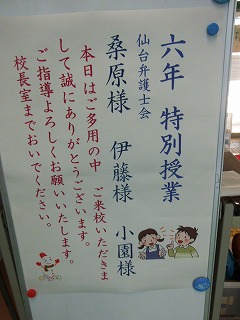 六年 特別授業
仙台弁護士会
桑原様 伊藤様 小園様
本日はご多用の中 ご来校いただきま
して誠にありがとうございます。
ご指導よろしくお願いいたします。
校長室までおいでください。